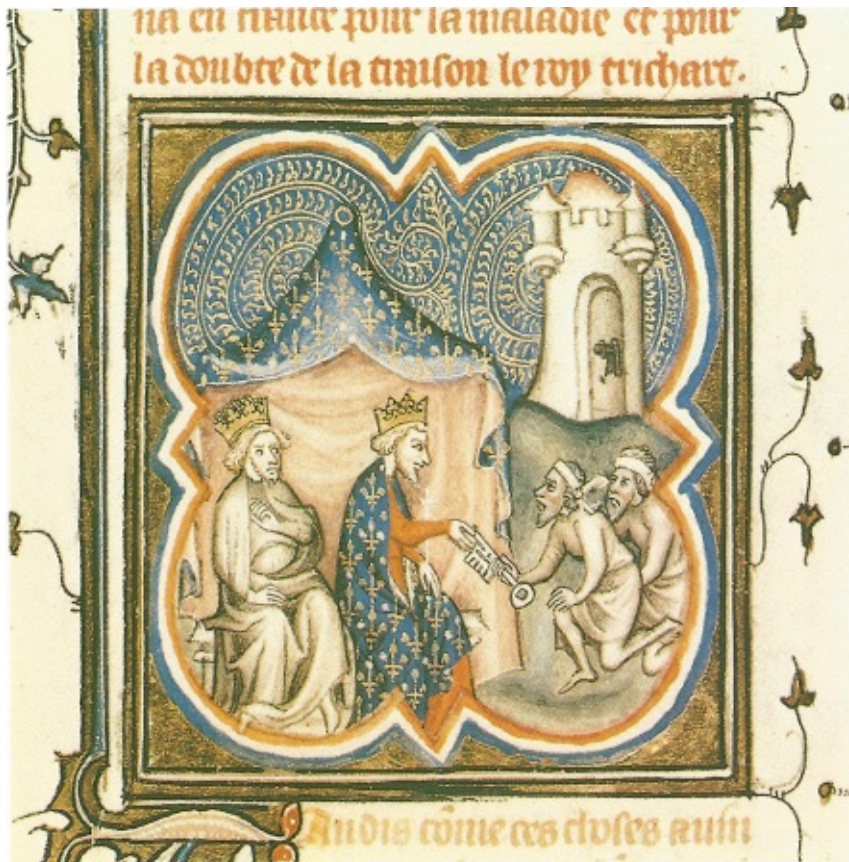 na en france pour la maladie et pour
la doubte de la traison le roy trichart.
Andis cõme ces choses ainsi